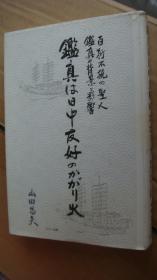 百折不撓の聖人
鑑真の背景と影響
鑑真は日中友好のかがり火
山田